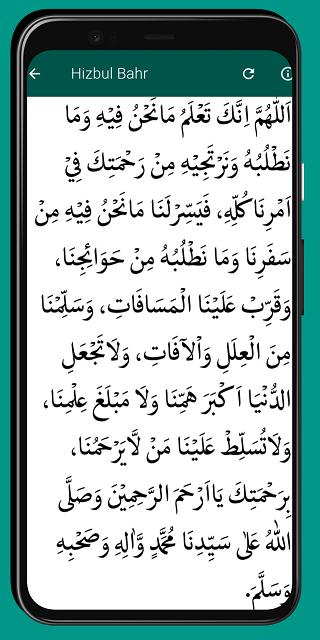 Hizbul Bahr
اَللّٰهُمَّ اِنَّكَ تَعْلَمُ مَانَحْنُ فِيْهِ وَمَا
نَطْلُبُهُ وَنَرْتَجِيْهِ مِنْ رَحْمَتِكَ فِيْ
اَمْرِنَاكُلِّهِ، فَيَسِّرْلَنَا مَانَحْنُ فِيْهِ مِنْ
سَفَرِنَا وَمَا نَطْلُبُهُ مِنْ حَوَائِجِنَا،
وَقَرِّبْ عَلَيْنَا الْمَسَافَاتِ، وَسَلِّمْنَا
مِنَ الْعِلَلِ وَاْلآفَاتِ، وَلَاتَجْعَلِ
الدُّنْيَا اَكْبَرَ هَمِّنَا وَلَا مَبْلَغَ عِلْمِنَا،
وَلَاتُسَلِّطْ عَلَيْنَا مَنْ لَّايَرْحَمُنَا،
بِرَحْمَتِكَ يَااَرْحَمَ الرَّحِمِيْنَ وَصَلَّى
اللهُ عَلٰى سَيِّدِنَا مُحَمَّدٍ وَّاٰلِهِ وَصَحْبِهِ
وَسَلَّمَ.